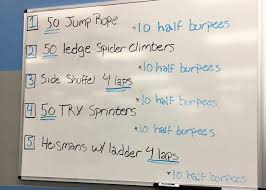 1 50 Jump Rope
*10 half burpees
2 50 ledge Spider Climbers
*10 half burpees
3 Side Shuffel 4 laps
*10 half burpees
4 50 TRX Sprinters
*10 half burpees
5 Heismans w/ ladder 4 laps
*10 half burpees